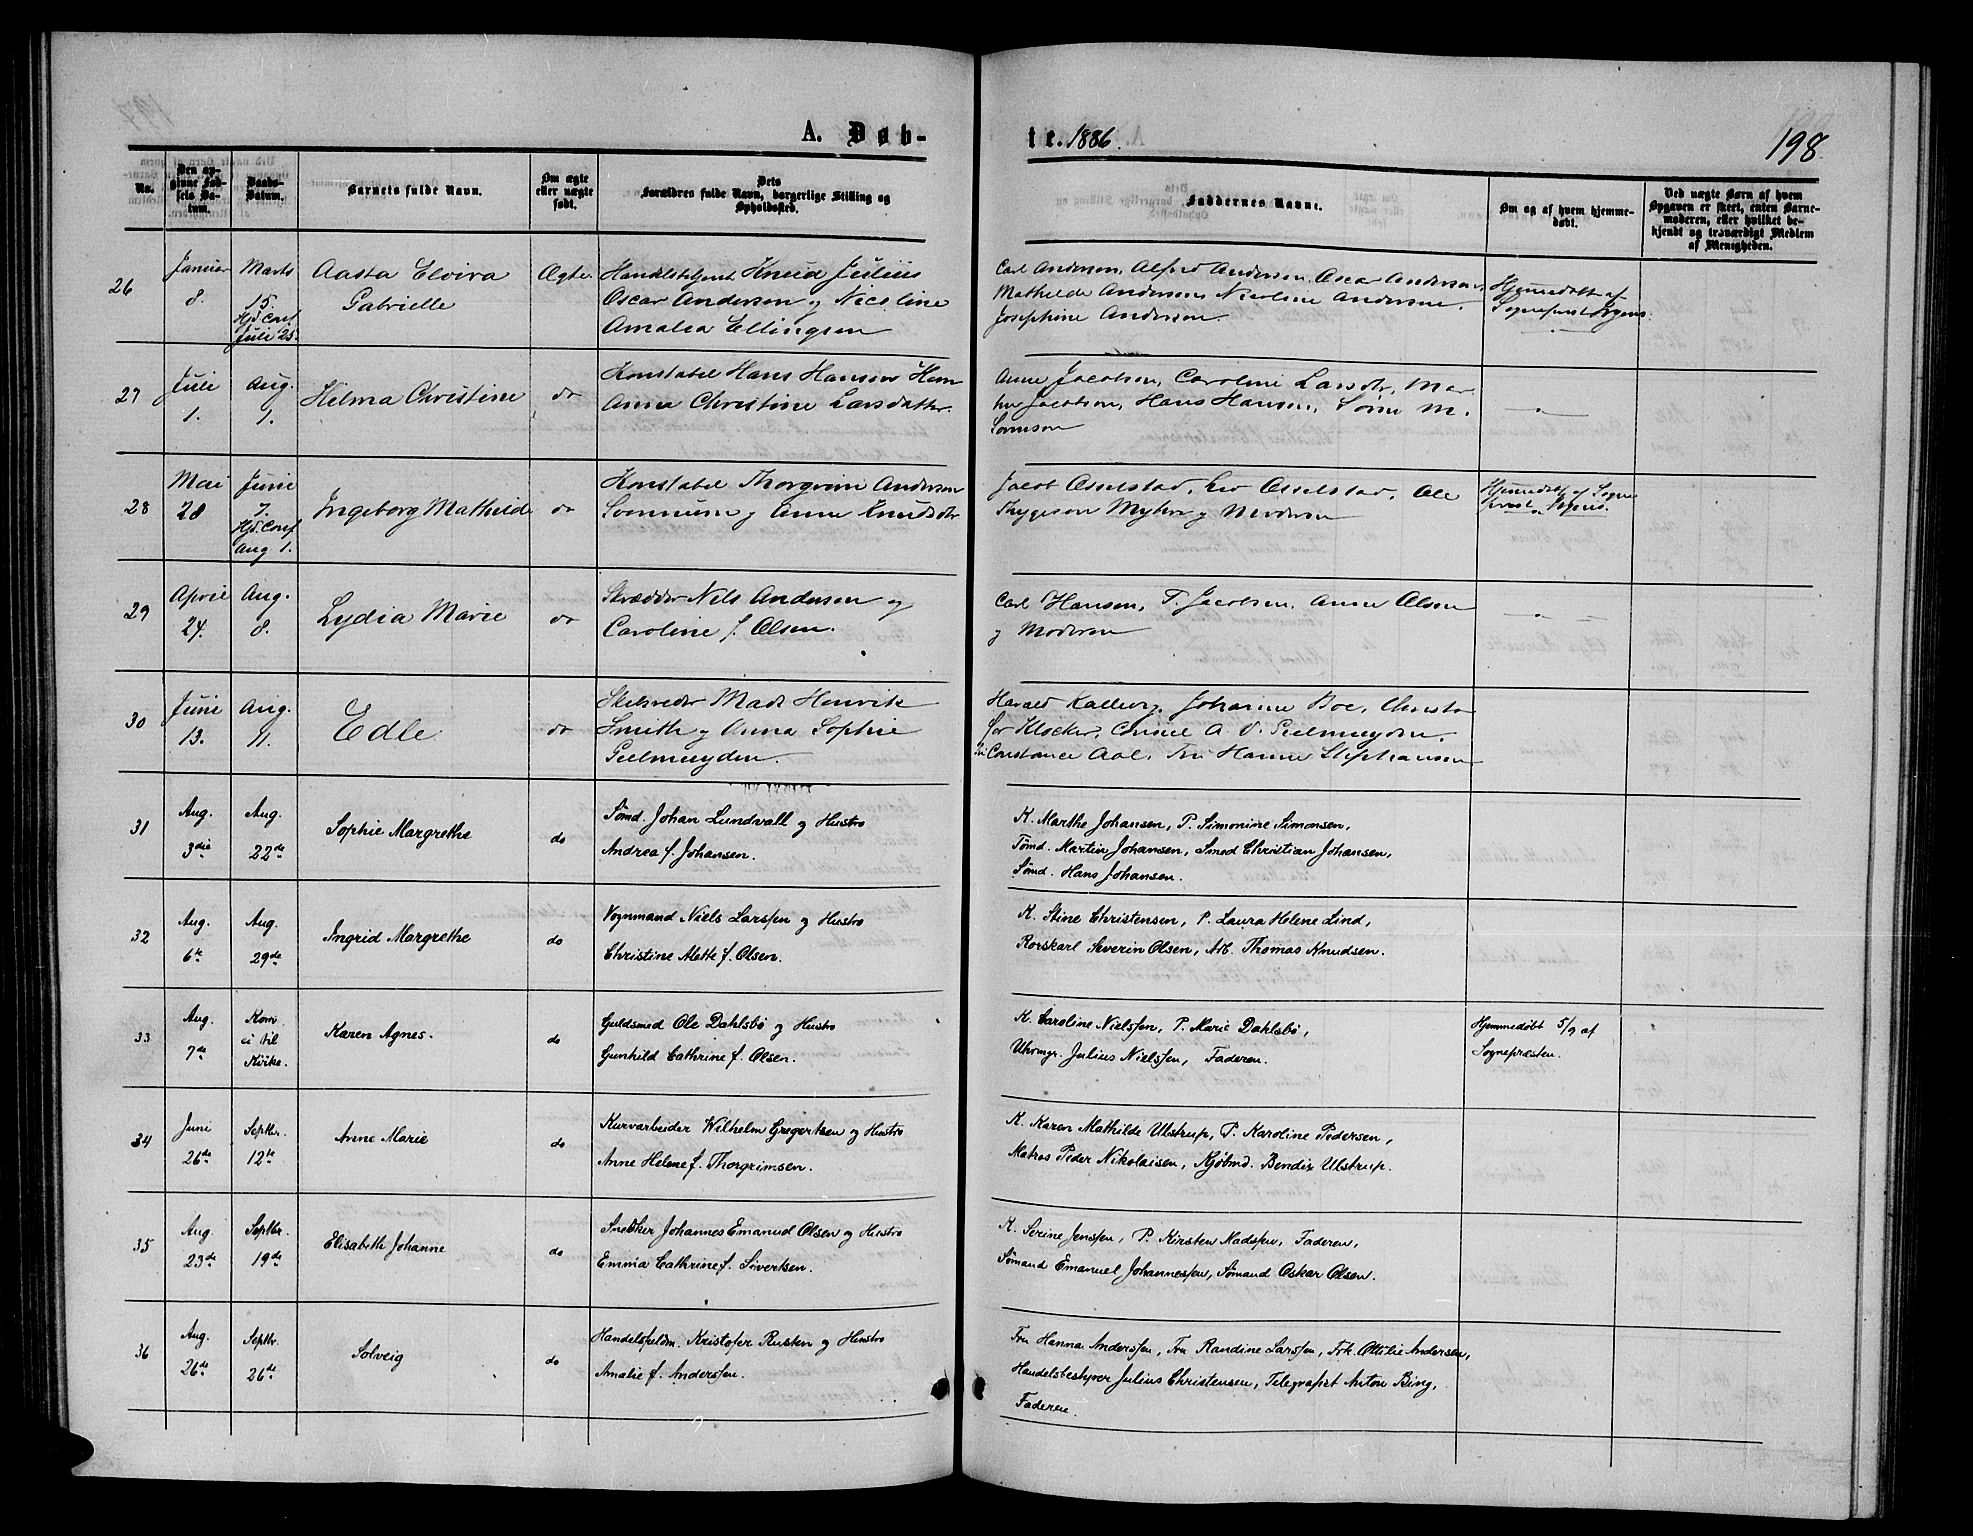 A. Døb-
te. 1886.
198.
No.
Den op-
givne Fød-
sels Da-
tum.
Daabs-
Datum.
Barnets fulde Navn.
Om ægte
eller uægte
født.
Dets
Forældres fulde Navn, borgerlige Stilling og
Opholdssted.
Faddernes Navne.
Om og af hvem hjemme-
døbt.
Ved uægte Børn af hvem
Opgaven er skeet, enten Barne-
moderen, eller hvilket be-
kjendt og troværdigt Medlem
af Menigheden.
26
Januar
8.
Marts
15.
Hjd Conf
Juli 25.
Aasta Elvira
Gabrielle
Ægte
Handelsbetjent Knud Julius
Oscar Andersen og Nicoline
Amalia Ellingsen
Carl Andersen, Alfred Andersen, Oscar Andersen,
Mathilde Andersen, Nicoline Andersen,
Josephine Andersen.
Hjemmedøbt af
27
Juli
1.
Aug.
1.
Hilma Christine
do
Konstabel Hans Hansen
Anna Christine Larsdatter.
Anne Jacobsen, Caroline Larsdtr, Mar
Jacobsen, Hans Hansen, Sørin M.
Sørensen
28
Mai
28
Juni
7.
Hjd Conf
Aug 1.
Ingeborg Mathild
do
Konstabel Thorgrim Andersen
og Anne Knudsdtr
Jacob Asselstad, Asselstad, Ole
Thygeson Myhre og Moderen
Hjemmedøbt af Sogne
29
April
24.
Aug.
8.
Lydia Marie
do
Skrædder Nils Andersen og
Caroline f. Olsen.
Carl Hansen, T. Jacobsen, Anne Olsen
og Moderen
30
Juni
13.
Aug.
11.
Edle
do
Skibsreder Mads Henrik
Smith og Anna Sophie
Geelmuyden.
Harald Kallevig, Johanne Boe, Christo
fer Kløcker, Consul A. V. Geelmuyden,
Fr. Constance Aal, Fru Hanne Stephansen
31
Aug.
3die
Aug.
22de
Sophie Margrethe
do
Sømd. Johan Lundvall og Hustro
Andrea f. Johansen.
K. Marthe Johansen, P. Simonine Simonsen,
Tømd. Martin Johansen, Smed Christian Johansen,
Sømd. Hans Johansen.
32
Aug.
6te
Aug.
29de
Ingrid Margrethe
do
Vognmand Niels Larssen og Hustro
Christine Alette f. Olsen.
K. Stine Christensen, P. Laura Helene Lind,
Rorskarl Severin Olsen, Arb. Thomas Knudsen.
33
Aug.
7de
Kom
ei til
Kirke.
Karen Agnes.
do
Guldsmed Ole Dahlsbø og Hustro
Gunhild Cathrine f. Olsen.
K. Caroline Nielssen, P. Marie Dahlsbø,
Uhrmgr. Julius Nielssen, Faderen.
Hjemmedøbt 5/9 af
Sognepræsten.
34
Juni
26de
Septbr.
12te
Anne Marie
do
Kurvarbeider Wilhelm Gregertsen og Hustro
Anne Helene f. Thorgrimsen.
K. Karen Mathilde Ulstrup, P. Karoline Pedersen,
Matros Peder Nikolaisen, Kjøbmd. Bendix Ulstrup.
35
Aug.
23de
Septbr.
19de
Elisabeth Johanne
do
Snedker Johannes Emanuel Olsen og Hustro
Emma Cathrine f. Sivertsen.
K. Serine Jenssen, P. Kirsten Madssen, Faderen,
Sømand Emanuel Johannessen, Sømand Oskar Olsen.
36
Aug.
26de
Septbr.
26de
Solveig
do
Handelsfuldm. Kristofer Rusten og Hustro
Amalie f. Anderssen.
Fru Hanna Anderssen, Fru Randine Larssen, Frk. Ottilie Andersen,
Handelsbestyrer Julius Christensen, Telegrafist Anton Bing,
Faderen.